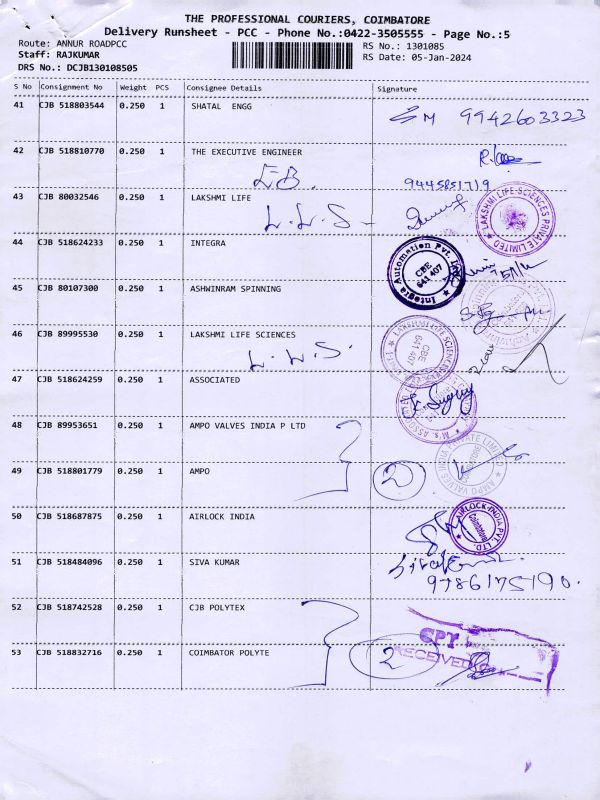 THE PROFESSIONAL COURIERS, COIMBATORE
Delivery Runsheet - PCC - Phone No.:0422-3505555 - Page No.:5
Route: ANNUR ROADPCC
RS No.: 1301085
Staff: RAJKUMAR
RS Date: 05-Jan-2024
DRS No.: DCJB130108505
S No Consignment No Weight PCS Consignee Details Signature
41 CJB 518803544 0.250 1 SHATAL ENGG
9942603323
42 CJB 518810770 0.250 1 THE EXECUTIVE ENGINEER
E.B.
9445851719
43 CJB 80032546 0.250 1 LAKSHMI LIFE
L.L.S-
LAKSHMI LIFE-SCIENCES PRIVATE LIMITED
44 CJB 518624233 0.250 1 INTEGRA
Integra Automation Pvt. Ltd.
CBE
641 407
45 CJB 80107300 0.250 1 ASHWINRAM SPINNING
46 CJB 89995530 0.250 1 LAKSHMI LIFE SCIENCES
L.L.S.
LAKSHMI LIFE SCIENCES
CBE
641 407
47 CJB 518624259 0.250 1 ASSOCIATED
M/s. ASSOCIATED
48 CJB 89953651 0.250 1 AMPO VALVES INDIA P LTD
AMPO VALVES INDIA PRIVATE LIMITED
49 CJB 518801779 0.250 1 AMPO
2
50 CJB 518687875 0.250 1 AIRLOCK INDIA
AIRLOCK INDIA PVT. LTD.
Coimbatore
51 CJB 518484096 0.250 1 SIVA KUMAR
9786175190.
52 CJB 518742528 0.250 1 CJB POLYTEX
CPT
RECEIVED
53 CJB 518832716 0.250 1 COIMBATOR POLYTE
2